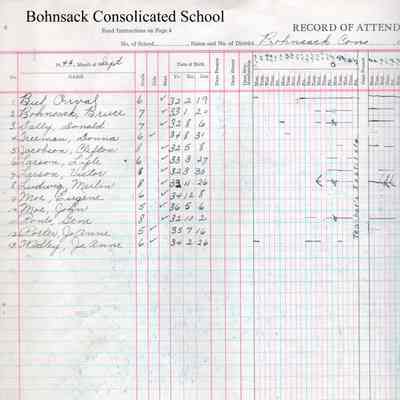 Bohnsack Consolicated School
RECORD OF ATTEND
Read Instructions on Page 4
No. of School Name and No. of District Bohnsack Cons
1944 Month of Sept
Date of Birth
No. NAME Grade Yr. Mo. Day
1 Bud, Orval 6 32 2 19
2 Bohnsack, Bruce 7 33 1 20
3 Sally, Donald 7 32 8 6
4 Freeman, Donna 6 34 8 31
5 Jacobson, Clifton 8 32 5 8
6 Larson, Lyle 6 33 3 27
7 Larson, Victor 8 32 3 30
8 Ludwig, Merlin 8 32 11 26
9 Moe, Eugene 6 34 12 8
10 Moe, John 5 36 5 6
11 Gene 8 32 10 2
12 Porter, JoAnne 5 35 7 16
13 JoAnne 6 34 2 26
Teacher's Institute